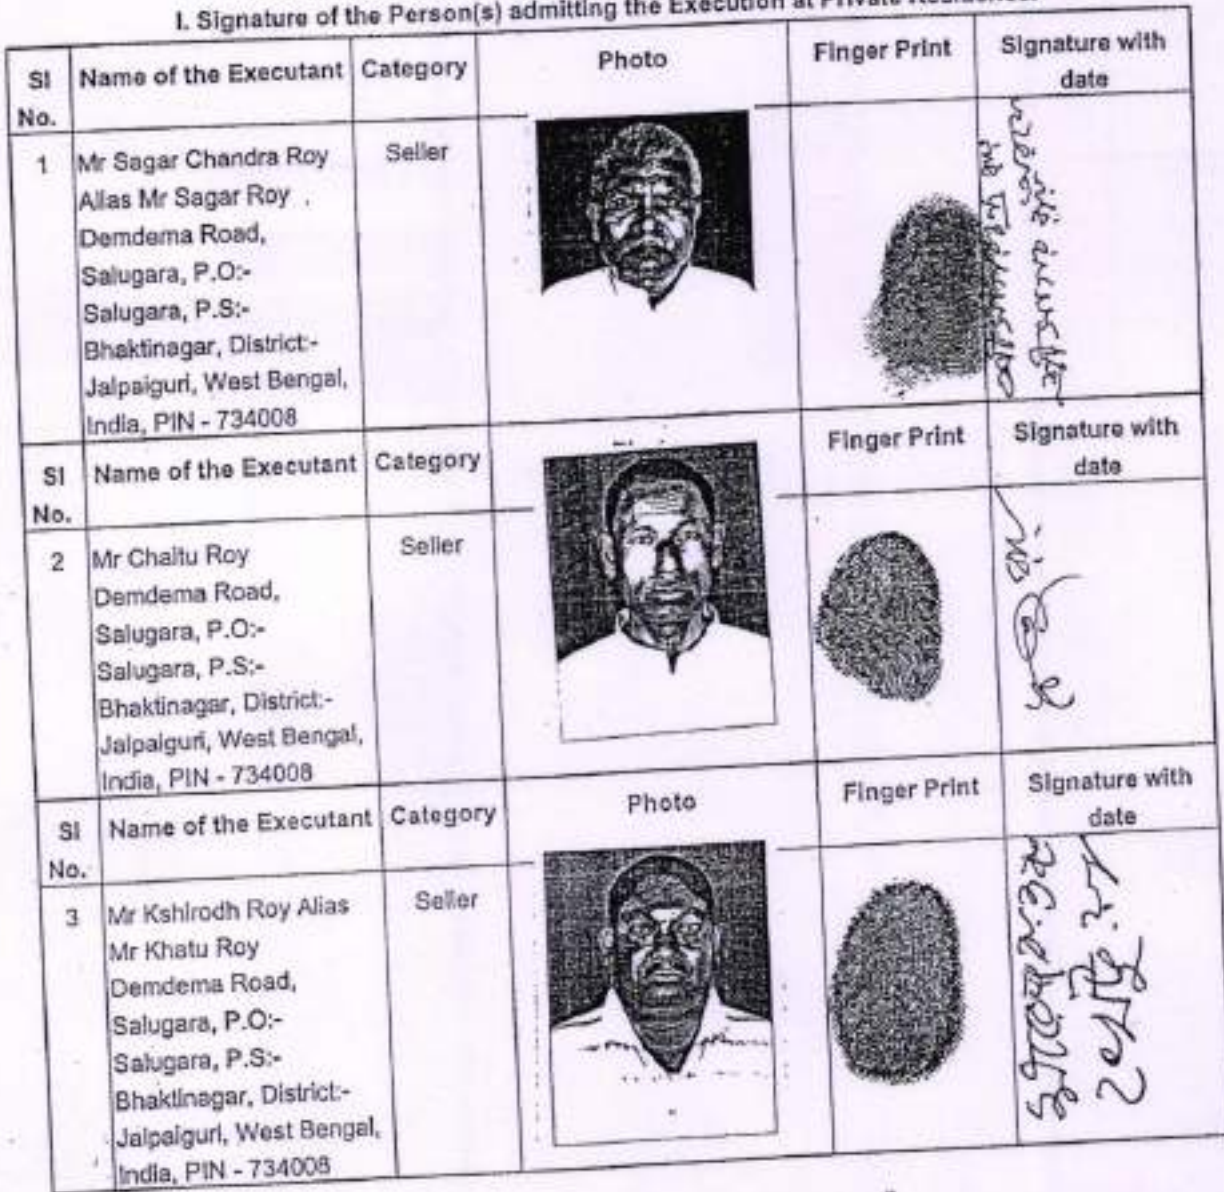 I. Signature of the Person(s) admitting the Execution at Private Residence.
Sl No.
Name of the Executant
Category
Photo
Finger Print
Signature with date
1
Mr Sagar Chandra Roy
Alias Mr Sagar Roy
Demdema Road,
Salugara, P.O:-
Salugara, P.S:-
Bhaktinagar, District:-
Jalpaiguri, West Bengal,
India, PIN - 734008
Seller
Sl No.
Name of the Executant
Category
Finger Print
Signature with date
2
Mr Chaitu Roy
Demdema Road,
Salugara, P.O:-
Salugara, P.S:-
Bhaktinagar, District:-
Jalpaiguri, West Bengal,
India, PIN - 734008
Seller
Sl No.
Name of the Executant
Category
Photo
Finger Print
Signature with date
3
Mr Kshirodh Roy Alias
Mr Khatu Roy
Demdema Road,
Salugara, P.O:-
Salugara, P.S:-
Bhaktinagar, District:-
Jalpaiguri, West Bengal,
India, PIN - 734008
Seller